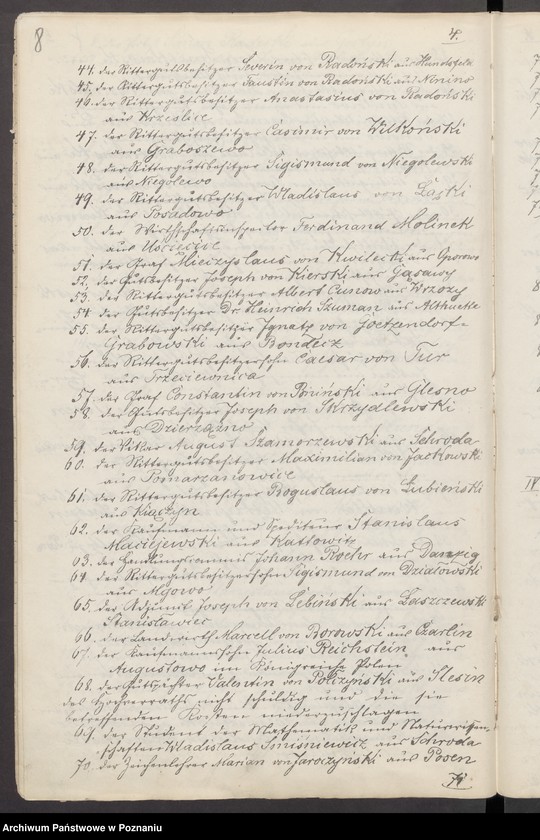 8
4.
44. der Rittergutsbesitzer Severin von Radoński aus Hundsfeld
45. der Rittergutsbesitzer Faustin von Radoński aus Ninino
46. der Rittergutsbesitzer Anastasius von Radoński
aus Krzeslice
47. der Rittergutsbesitzer Casimir von Wilkoński
aus Graboszewo
48. der Rittergutsbesitzer Sigismund von Niegolewski
aus Niegolewo
49. der Rittergutsbesitzer Wladislaus von Łącki
aus Posadowo
50. der Wirthschaftsinspector Ferdinand Molinek
aus Uścięcice
51. der Graf Mieczyslaus von Kwilecki aus Oporowo
52. der Gutsbesitzer Joseph von Kierski aus Gąsawy
53. der Rittergutsbesitzer Albert Cunow aus Wrzozy
54. der Gutsbesitzer Dr. Heinrich Szuman aus Althuette
55. der Rittergutsbesitzer Ignatz von Goetzendorf-
Grabowski aus Bondecz
56. der Rittergutsbesitzersohn Caesar von Tur
aus Trzeciewnica
57. der Graf Constantin von Bniński aus Glesno
58. der Gutsbesitzer Joseph von Skrzydlewski
aus Dzierzązno
59. der Vikar August Szamorzewski aus Schroda
60. der Rittergutsbesitzer Maximilian von Jackowski
aus Pomarzanowice
61. der Rittergutsbesitzer Boguslaus von Łubieński
aus Kiączyn
62. der Kaufmann und Spediteur Stanislaus
Maciejewski aus Kattowitz
63. der Handlungscommis Johann Roehr aus Danzig
64. der Rittergutsbesitzersohn Sigismund von Działowski
aus Mgowo
65. der Adjunct Joseph von Łebiński aus Laszczewski
Stanisławiec
66. der Landwirth Marcell von Borowski aus Czarlin
67. der Kaufmannssohn Julius Reichstein aus
Augustowo im Königreiche Polen
68. der Gutspächter Valentin von Połczyński aus Slesin
des Hochverraths nicht schuldig und die sie
betreffenden Kosten niederzuschlagen
69. der Student der Mathematik und Naturwissen-
schaften Wladislaus Smiśniewicz aus Schroda
70. der Zeichenlehrer Marian von Jaroczyński aus Posen
71.
IV
Archiwum Państwowe w Poznaniu